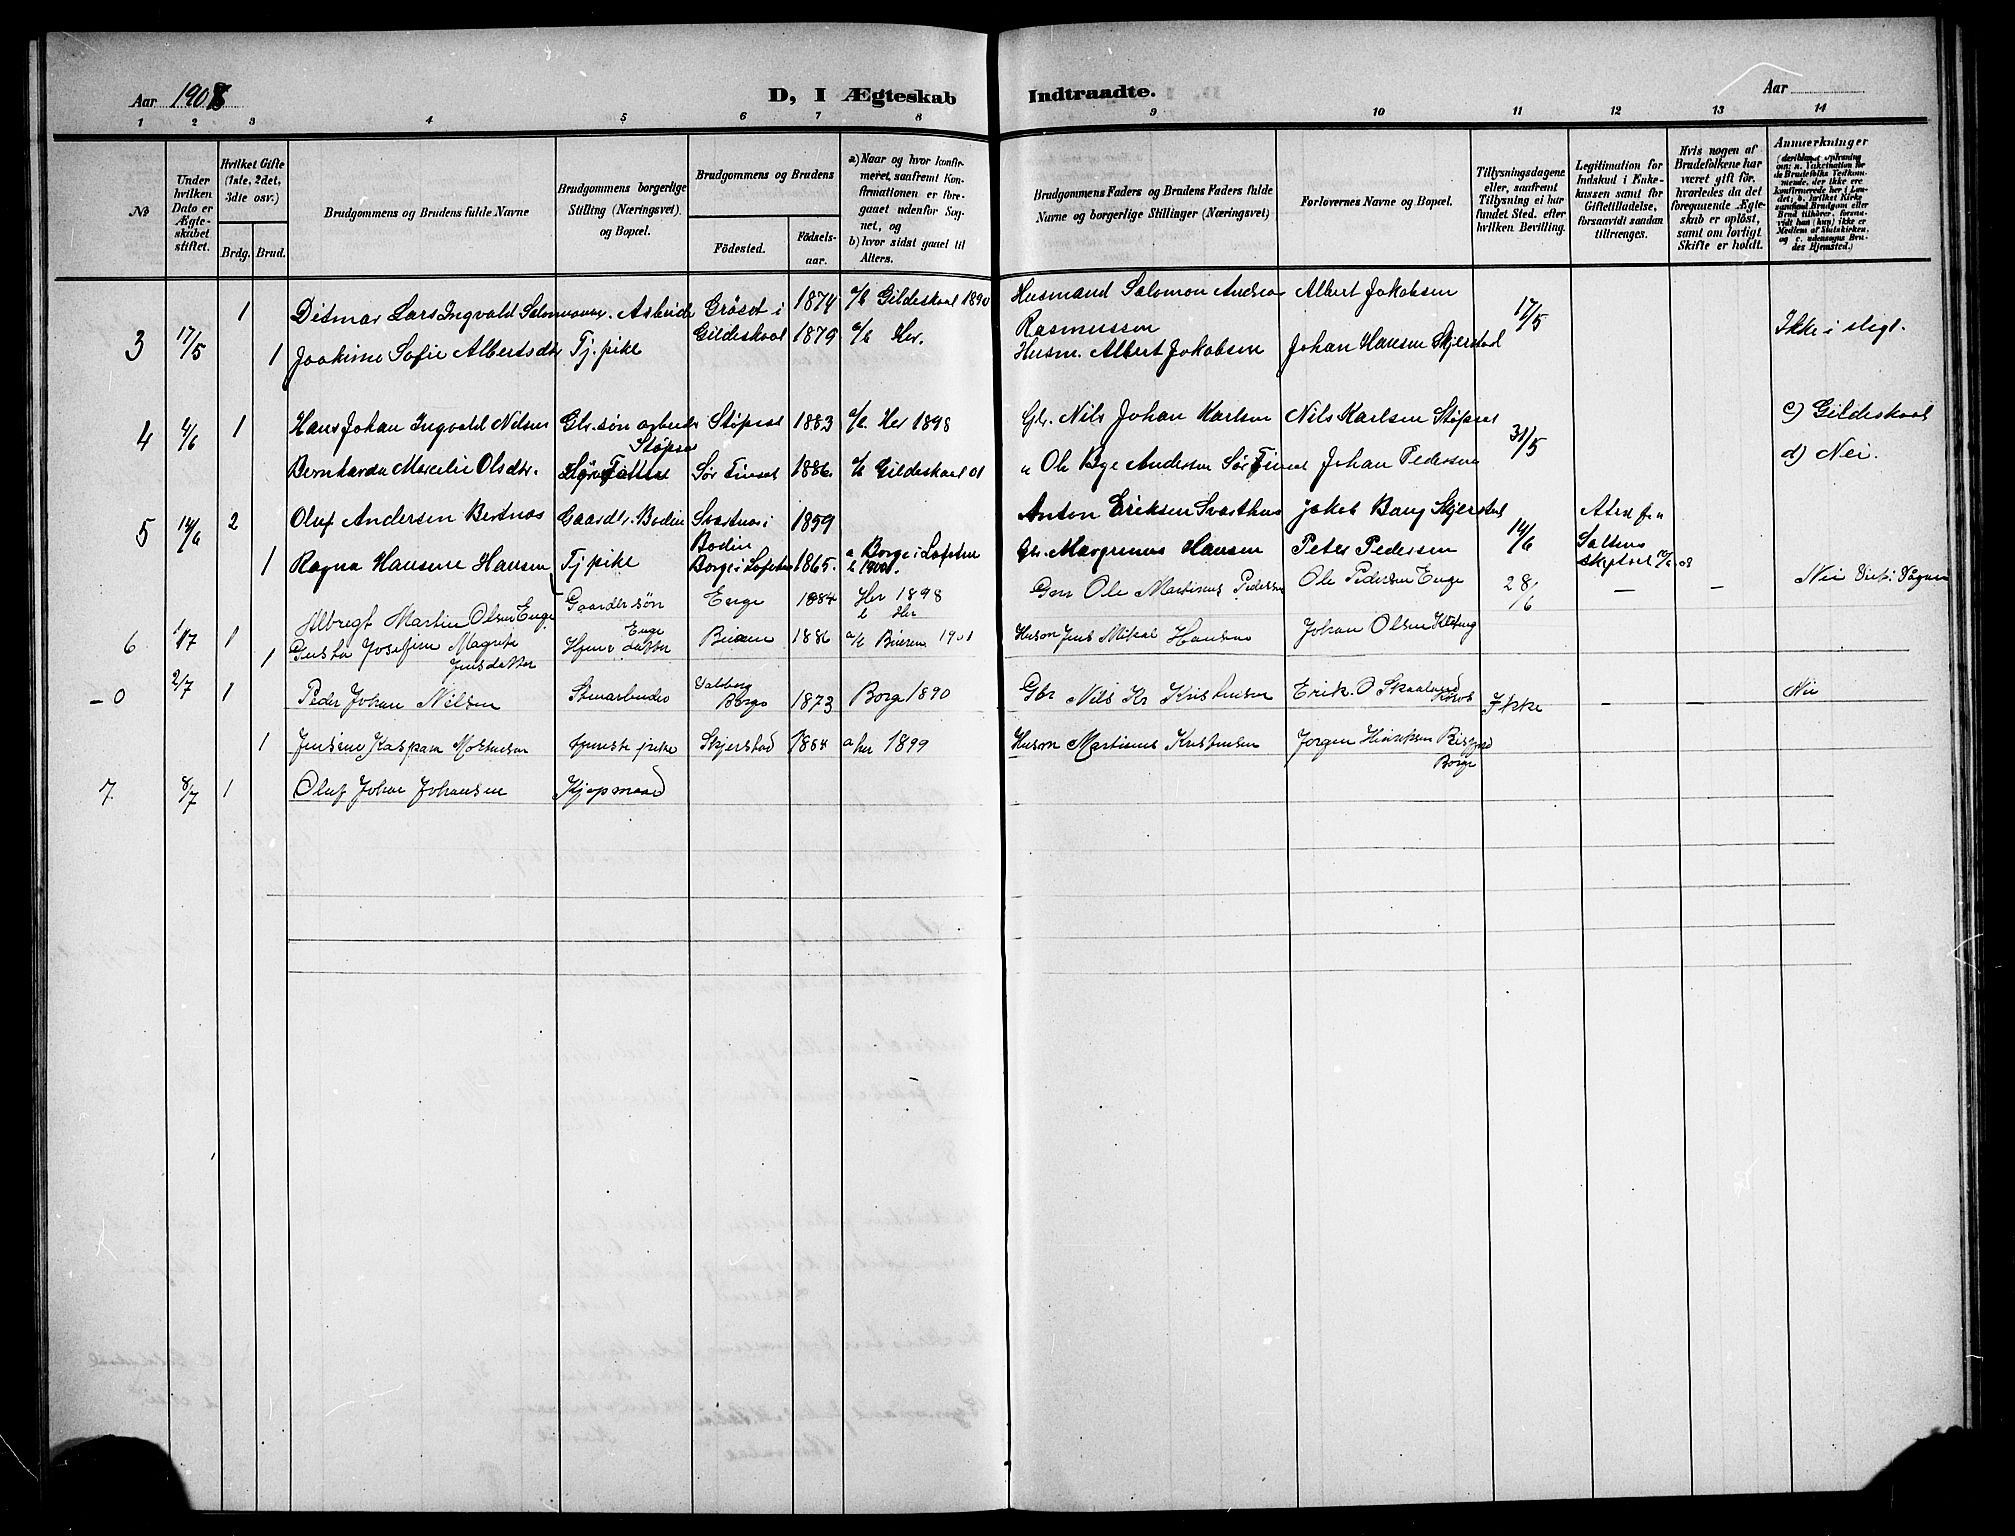 Aar 1908
D, I Ægteskab Indtraadte.
Aar
1 2 3 4 5 6 7 8 9 10 11 12 13 14
№
Under hvilken Dato er Ægteskabet stiftet.
Hvilket Gifte (1ste, 2det, 3die osv.)
Brdg. Brud.
Brudgommens og Brudens fulde Navne
Brudgommens borgerlige Stilling (Næringsvei) og Bopæl.
Brudgommens og Brudens
Födested.
Födselsaar.
a) Naar og hvor konfirmeret, saafremt Konfirmationen er foregaaet udenfor Sognet, og
b) hvor sidst gaaet til Alters.
Brudgommens Faders og Brudens Faders fulde Navne og borgerlige Stillinger (Næringsvei)
Forlovernes Navne og Bopæl.
Tillysningsdagene eller, saafremt Tillysning ei har fundet Sted, efter hvilken Bevilling.
Legitimation for Indskud i Enkekassen samt for Giftetilladelse, forsaavidt saadan tiltrænges.
Hvis nogen af Brudefolkene har været gift før, hvorledes da det foregaaende Ægteskab er opløst, samt om lovligt Skifte er holdt.
Anmærkninger
3 17/5 1 Ditmar Lars Ingvald Salomonsen Arbeider Gröset i 1874 a/b Gildeskaal 1890 Husmand Salomon Andrea Albert Jakobsen 17/5 Ikke i slegt.
Gildeskaal Rasmussen
1 Joakime Sofie Albertsdtr Tj. pike 1879 a/b Her. Husm. Albert Jakobsen Johan Hansen Skjerstad
4 4/6 1 Hans Johan Ingvald Nilsen Gbr. søn arbeider Støpset 1883 a/b Her 1898 Gbr. Nils Johan Karlsen Nils Karlsen Støpset 31/5 c) Gildeskaal
Støpset d) Nei.
Bernharda Marselie Olsdtr. Sør Finset 1886. a/b Gildeskaal 01 " Ole Andersen Sør Finset Johan Pedersen
5 14/6 2 Oluf Andersen Bertnæs Gaardbr. Bodin Svartnes i 1859 Anton Eriksen Svarthus Jakob Bang Skjerstad 14/6 Attest fra
Bodin Saltens
1 Ragna Hansine Hansen Tj pike Borge i Lofoten 1865. a Borge i Lofoten Gbr. Margrenus Hansen Peter Pedersen 08
6 1/7 1 Albregt Martin Olsen Enge Gaardersön Enge 1884 Her 1898 Gbr Ole Martinus Pedersen Ole Pedersen Enge 28/6 — — Nei
Enge b Her
1 Josefine Magrete datter 1886 a/b 1901 Husm Jens Mikal Hansen Johan Olsen
Jensdatter
- 0 2/7 1 Peder Johan Nilsen Stenarbeider Valberg 1873 Borge 1890 Gbr Nils Kr Kristensen Erik. O Ikke — — Nei
Borge
1 Jensine Kaspara tjeneste pike Skjerstad 1884 a her 1899 Husm Martinus Kristensen Jorgen Henriksen
Borge
7. 8/7 1 Oluf Johan Johansen Kjøpmand